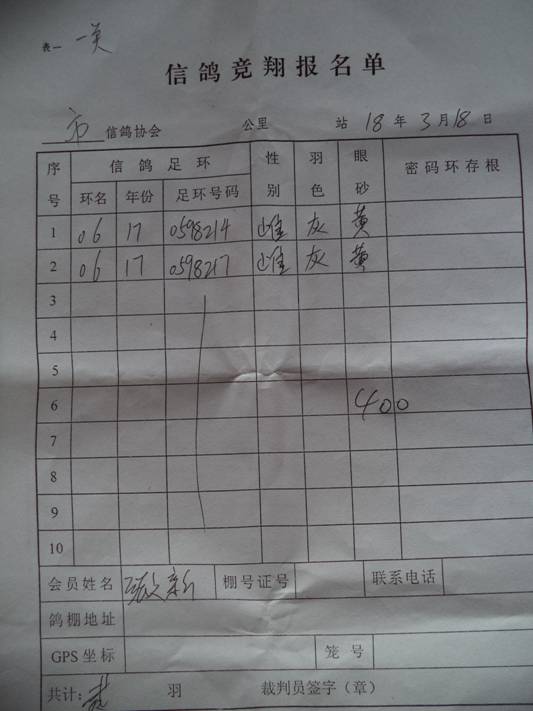 表一 一关
信鸽竞翔报名单
市 信鸽协会 公里 站 18 年 3 月 18 日
序号 信鸽足环 性别 羽色 眼砂 密码环存根
环名 年份 足环号码
1 06 17 0598214 雌 灰 黄
2 06 17 0598217 雌 灰 黄
3
4
5
6 400
7
8
9
10
会员姓名 新 棚号证号 联系电话
鸽棚地址
GPS坐标 笼号
共计: 贰 羽 裁判员签字(章)